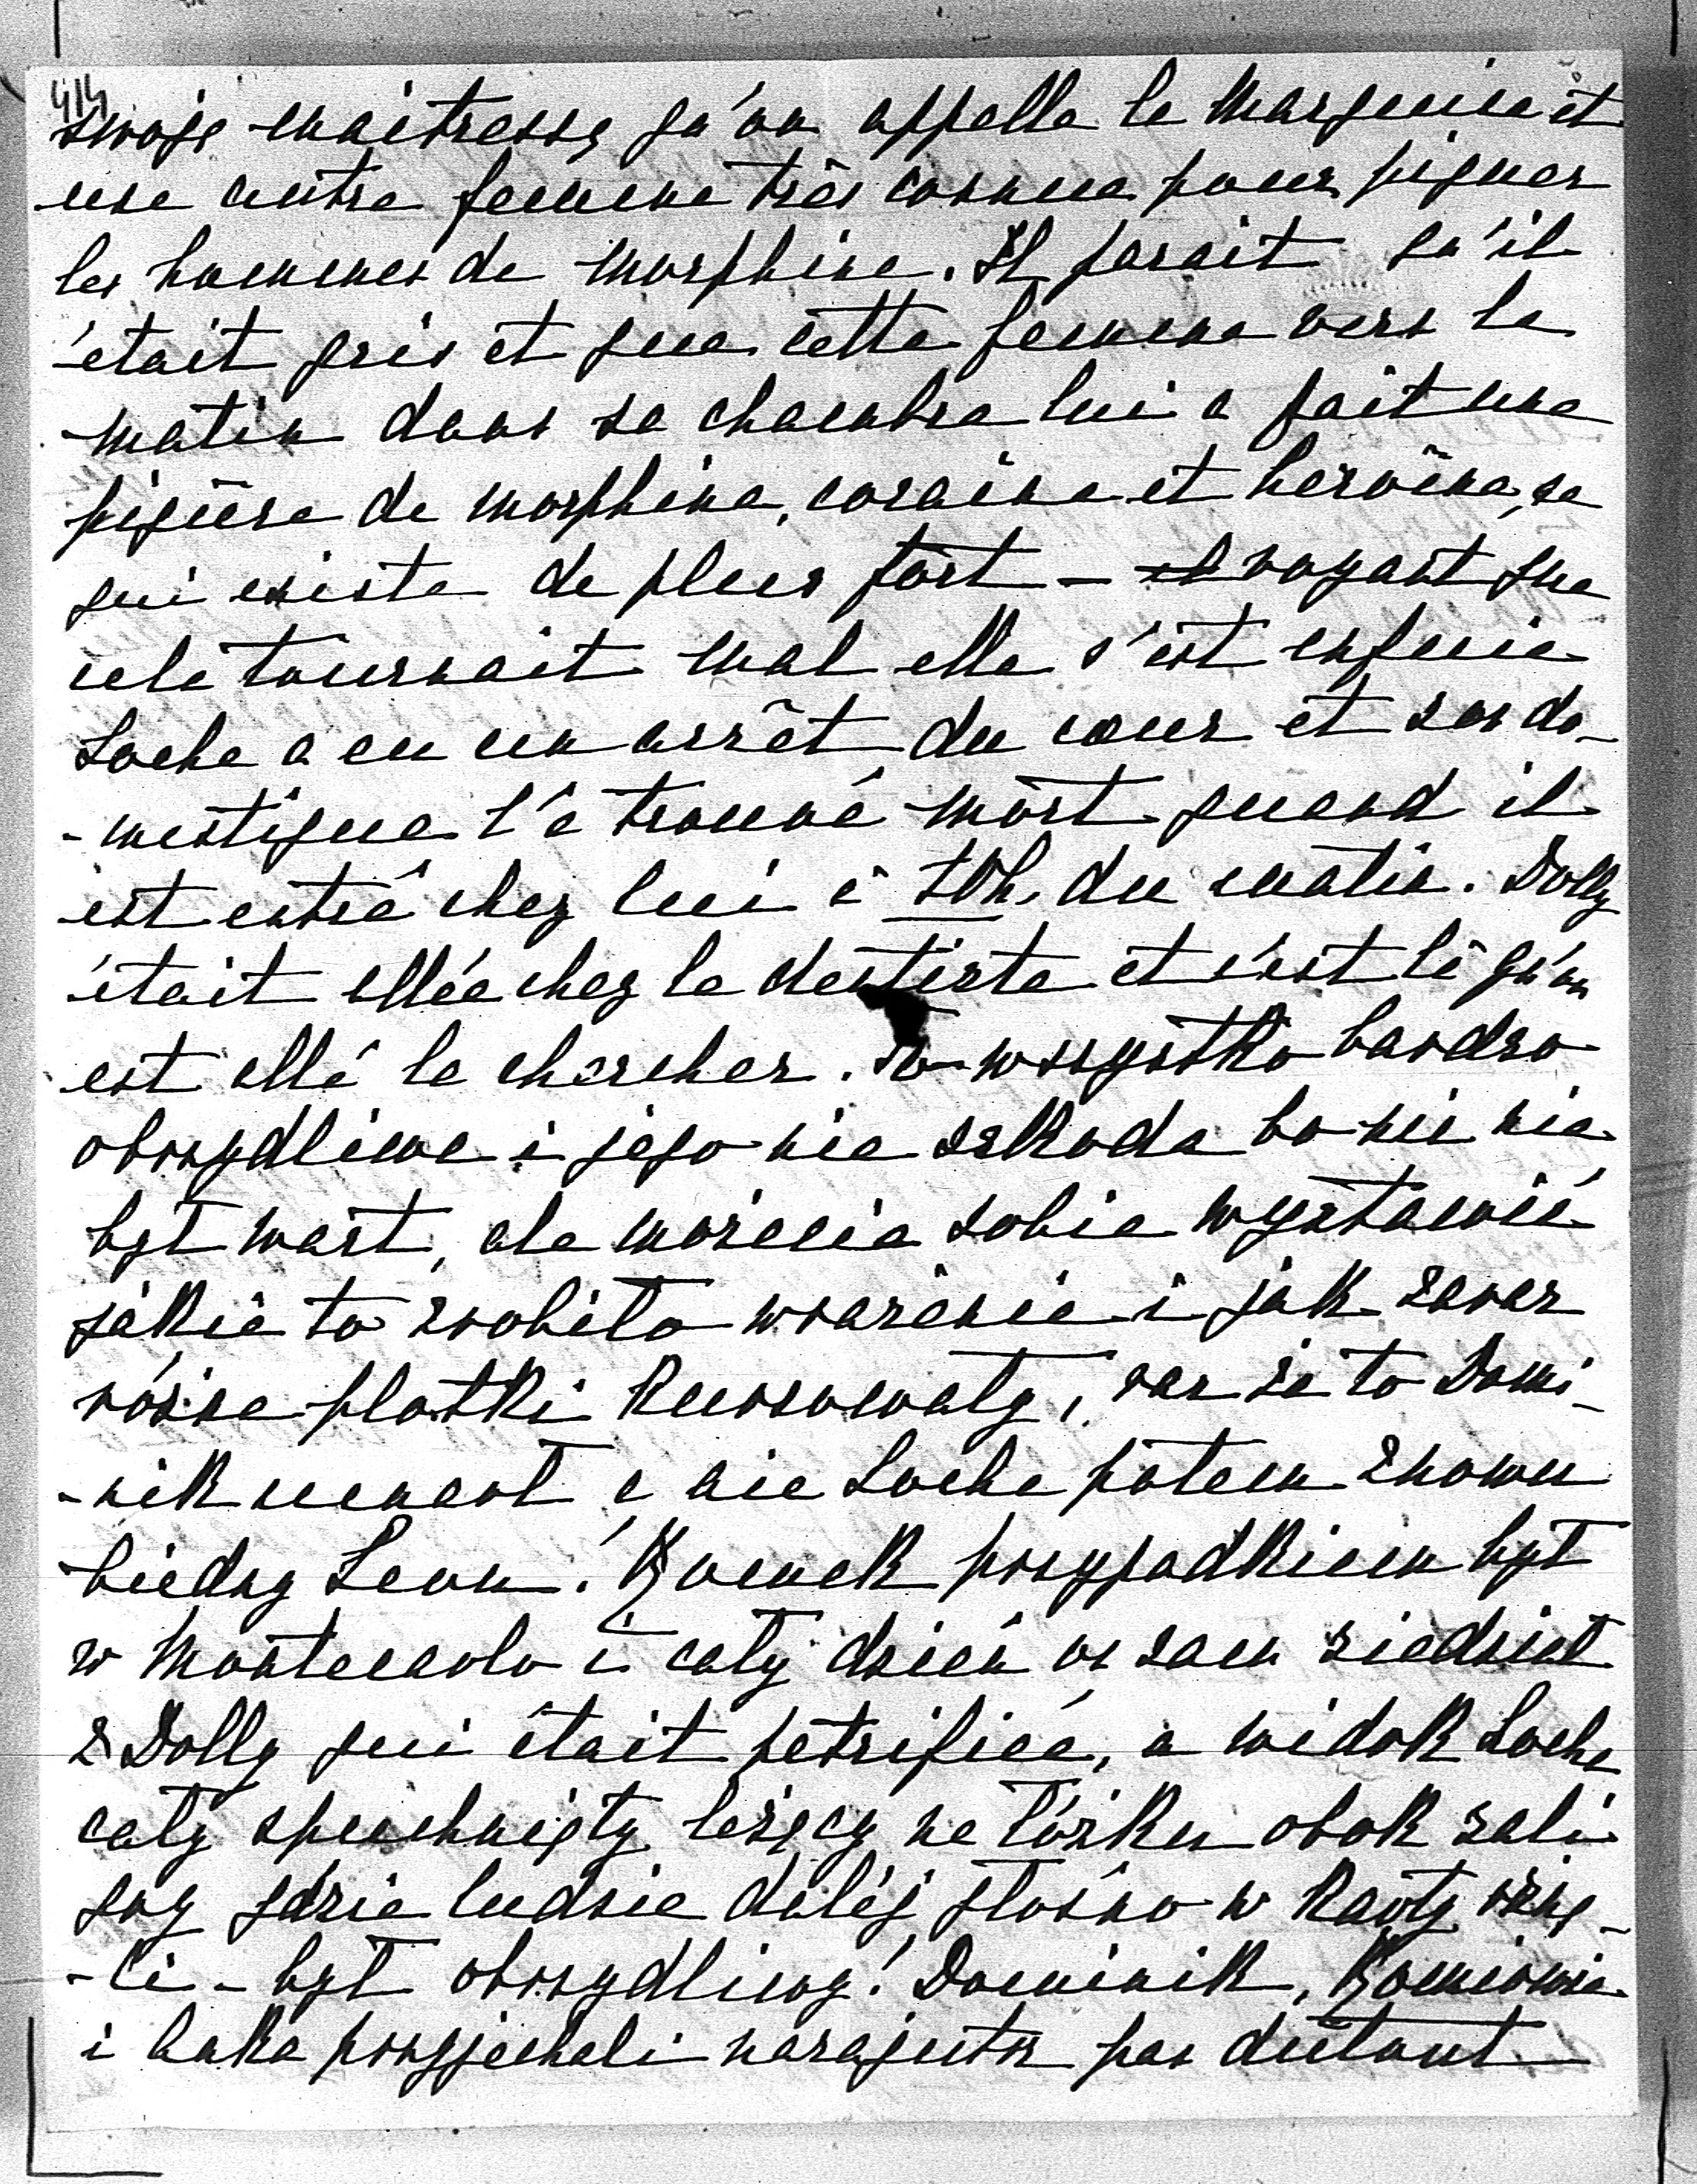 414
swoje maitresse qu'on appelle la Marquise et
une autre femme très connue pour piquer
les hommes de morphine. Il parait qu'il
était gris et que cette femme vers le
matin dans sa chambre lui a fait une
piqûre de morphine, cocaïne et heroïne, ce
qui existe de plus fort — voyant que
cela tournait mal elle s'est enfuie
Loche a eu un arrêt du cœur et son do-
-mestique l'a trouvé mort quand il
est entré chez lui à 10h. du matin. Dolly
était allée chez le dentiste et c'est là qu'on
est allé la chercher. To wszystko bardzo
obrzydliwe i jego nie szkoda bo nic nie
był wart, ale możecie sobie wystawić
jakie to zrobiło wrażenie i jak zaraz
różne plotki kursowały, raz że to Domi-
-nik umarł a nie Loche potem znowu
biedny Leon! Romek przypadkiem był
w Montecarlo i cały dzień on sam siedział
z Dolly qui était petrifiée, a widok Loche
cały spuchnięty leżący na łóżku obok sali
gry gdzie ludzie dalej głośno w karty rżnę-
-li - był obrzydliwy! Dominik, Romiowie
i przyjechali nazajutrz pas du tout